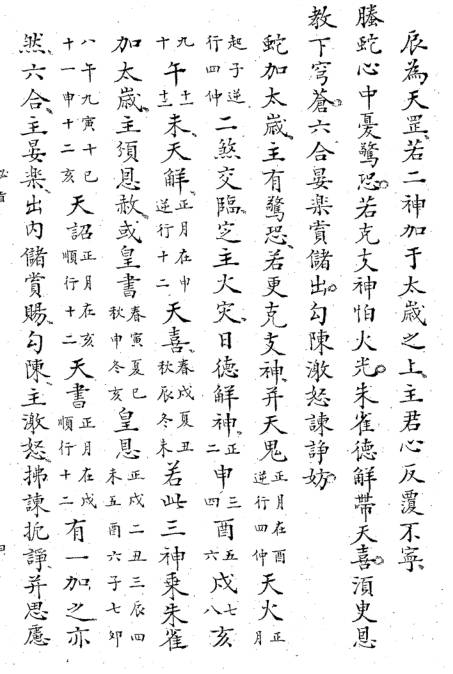 辰為天罡若二神加于太歲之上主君心反覆不寧
螣蛇心中憂驚恐若克支神怕火光朱雀德解帶天喜湏更恩
教下穹蒼六合晏樂賞儲出勾陳激怒諫諍妨
蛇加太歲主有驚恐若更克支神并天鬼正月在酉逆行四仲天火正月
起子逆行四仲二煞交臨定主火灾日德解神正二申三四酉五六戌七八亥
九十午十一十二未天解正月在申逆行十二天喜春戌夏丑秋辰冬未若此三神乘朱雀
加太歲主須恩赦或皇書春寅夏巳秋申冬亥皇恩正戌二丑三辰四未五酉六子七卯
八午九寅十巳十一申十二亥天詔正月在亥順行十二天書正月在戌順行十二有一加之亦
然六合主晏樂出内儲賞賜勾陳主激怒拂諫扼諍并思慮